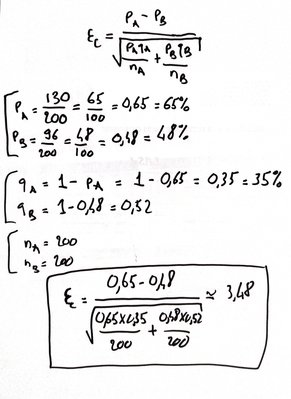 ε_c = (P_A - P_B) / √(P_A q_A / n_A + P_B q_B / n_B)
P_A = 130/200 = 65/100 = 0,65 = 65%
P_B = 96/200 = 48/100 = 0,48 = 48%
q_A = 1 - P_A = 1 - 0,65 = 0,35 = 35%
q_B = 1 - 0,48 = 0,52
n_A = 200
n_B = 200
ε_c = (0,65 - 0,48) / √(0,65 x 0,35 / 200 + 0,48 x 0,52 / 200) ≃ 3,48